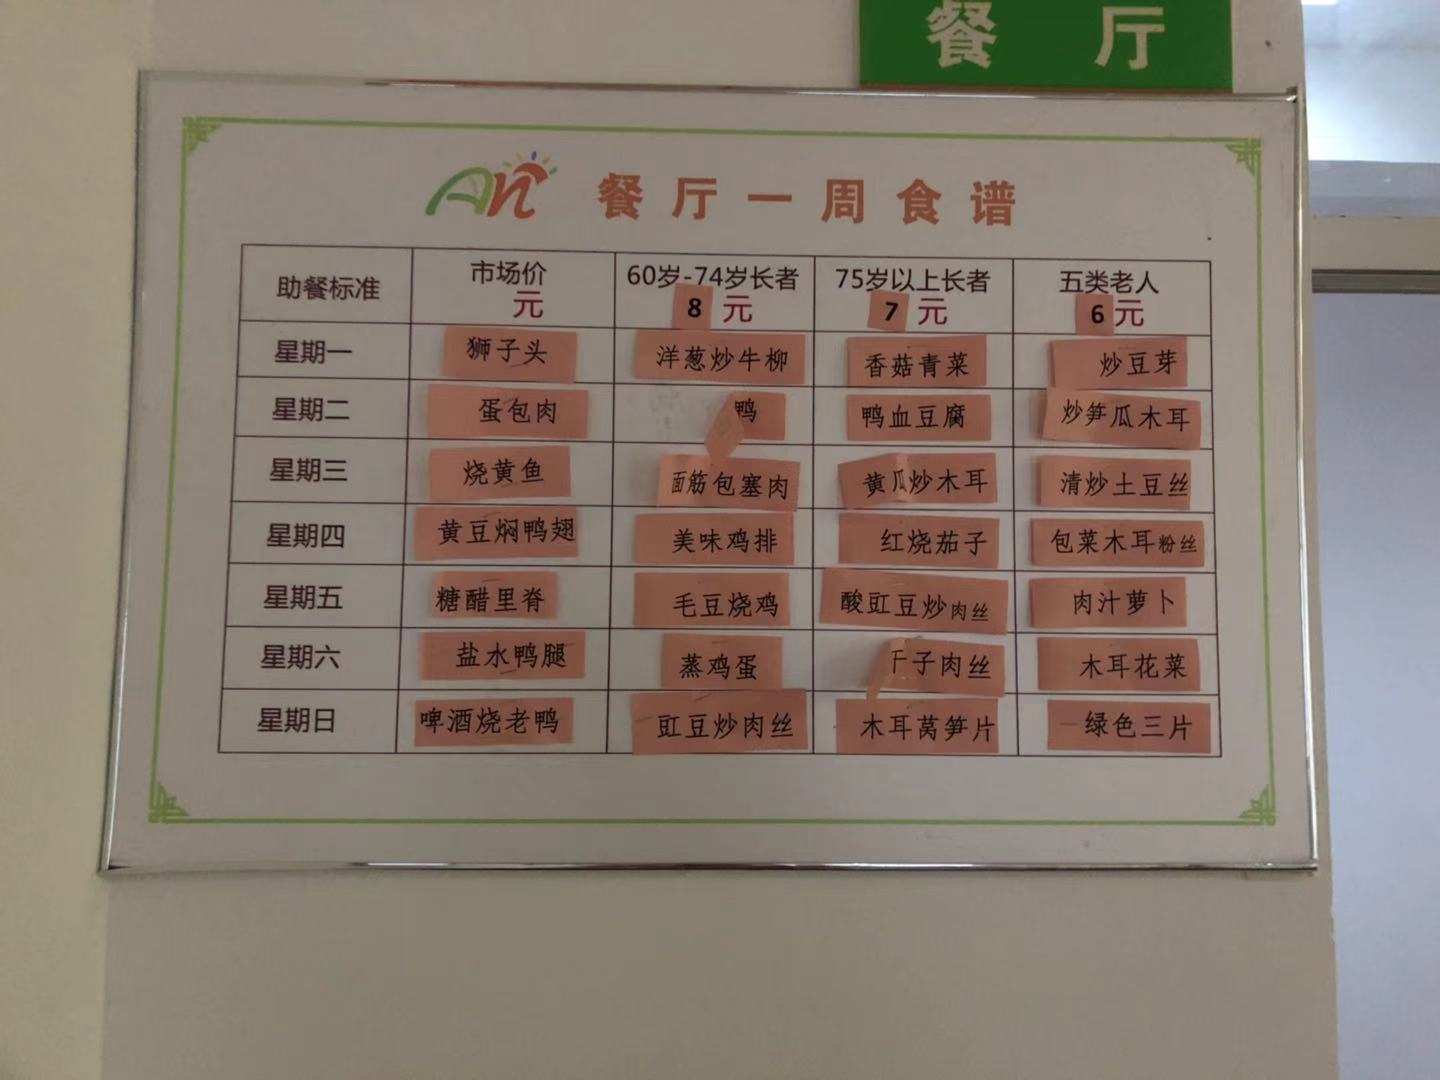 餐厅
An 餐厅一周食谱
助餐标准 市场价 元 60岁-74岁长者 8元 75岁以上长者 7元 五类老人 6元
星期一 狮子头 洋葱炒牛柳 香菇青菜 炒豆芽
星期二 蛋包肉 鸭 鸭血豆腐 炒笋瓜木耳
星期三 烧黄鱼 面筋包塞肉 黄瓜炒木耳 清炒土豆丝
星期四 黄豆焖鸭翅 美味鸡排 红烧茄子 包菜木耳粉丝
星期五 糖醋里脊 毛豆烧鸡 酸豇豆炒肉丝 肉汁萝卜
星期六 盐水鸭腿 蒸鸡蛋 干子肉丝 木耳花菜
星期日 啤酒烧老鸭 豇豆炒肉丝 木耳莴笋片 绿色三片